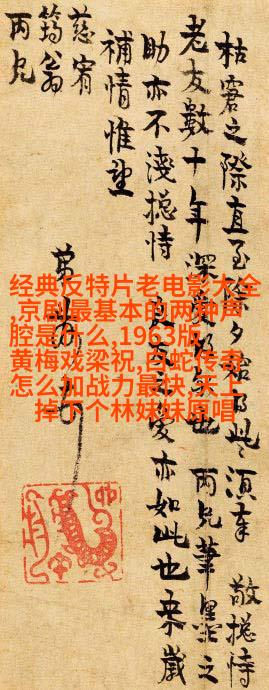 经典反特片老电影大全
,京剧最基本的两种声
腔是什么,1963版
黄梅戏梁祝,白蛇传奇
怎么加战力最快,天上
掉下个林妹妹原唱
枯窘之際直至除夕 此 須奉 敬摠恃
老友數十年深愛 也 丙兄筆墨之
助亦不淺摠恃 良友之愛亦如此也来歲
補情惟望
慈宥
筠翁
丙兄
弟